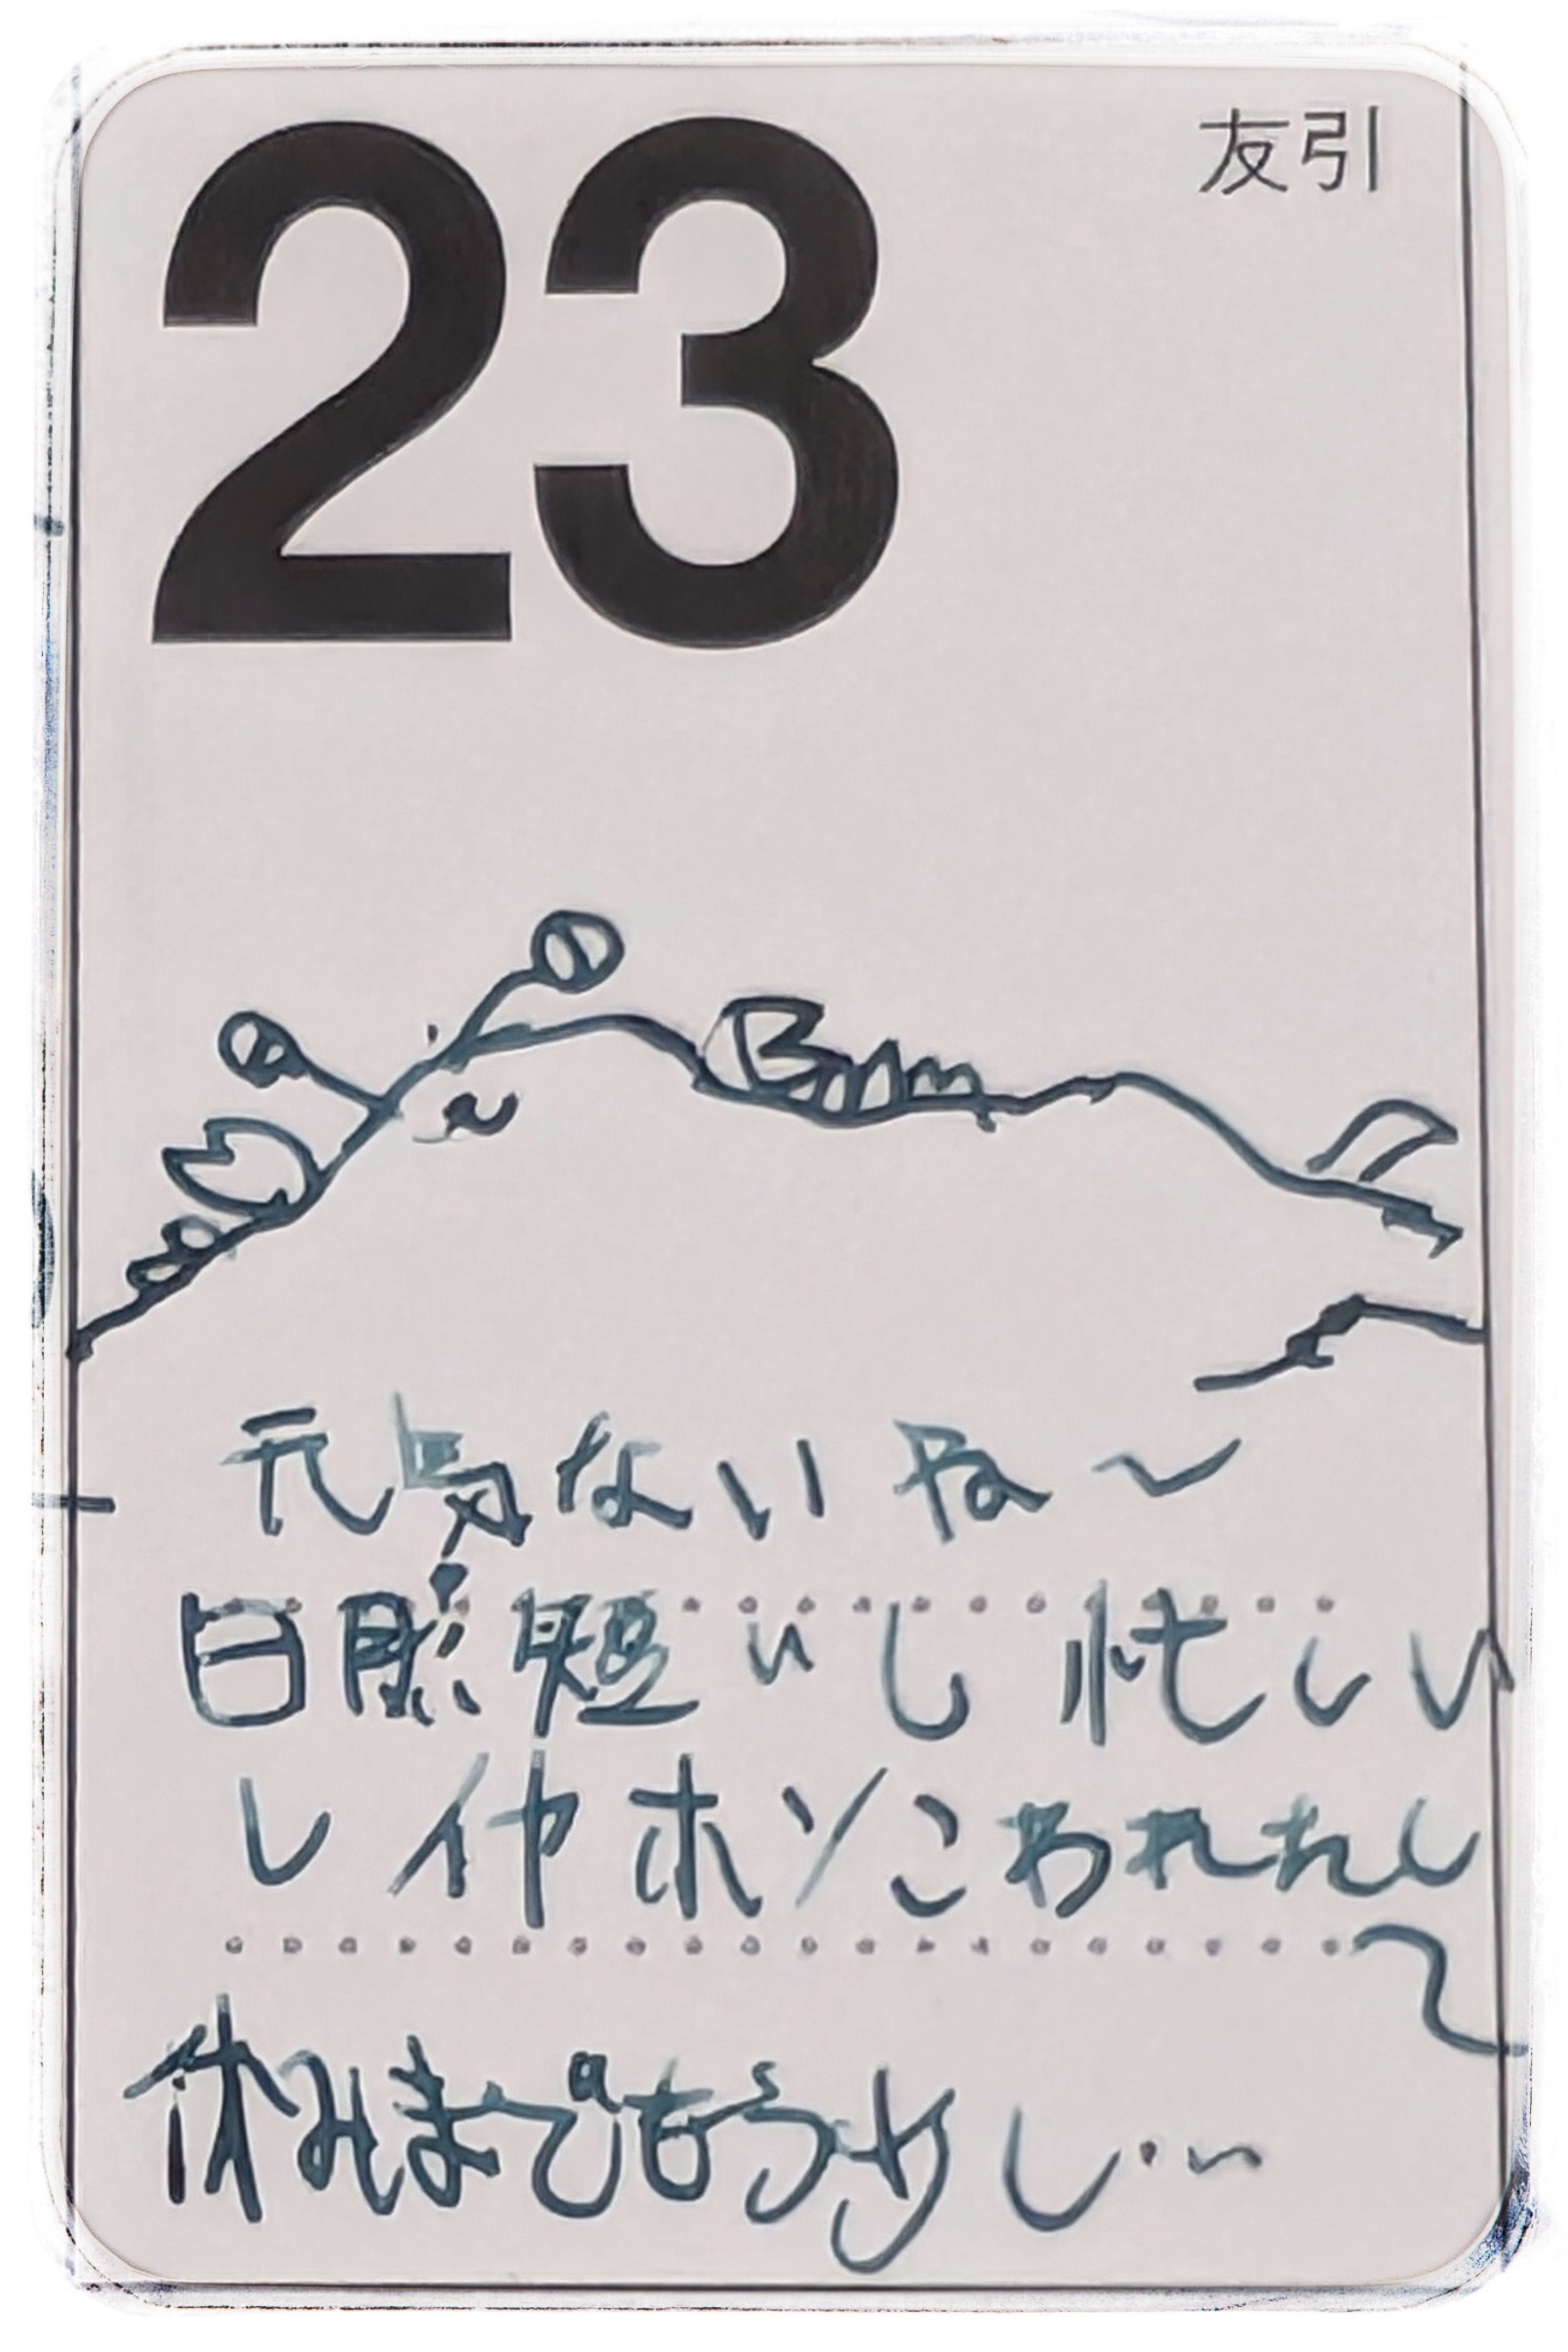 23
友引
元気ないね〜
日照短いし忙しい
しイヤホンこわれたし
〜
休みまでもう少し…